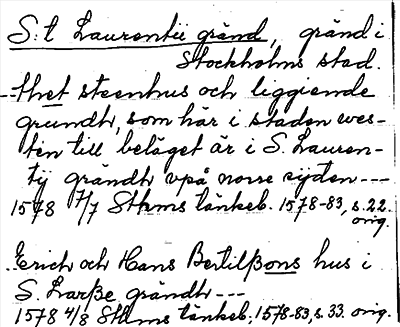 S:t Laurentii gränd, gränd i
Stockholms stad.
--thet steenhus och liggiende
grundh, som här i staden wes-
ten till beläget är i S. Lauren-
tij grändh vpå norre sijden---
1578 7/7 Sthms tänkeb. 1578-83, s. 22.
orig.
Erich och Hans Bertilßons hus i
S. Larße grändh---
1578 4/8 Sthms tänkeb. 1578-83, s. 33. orig.